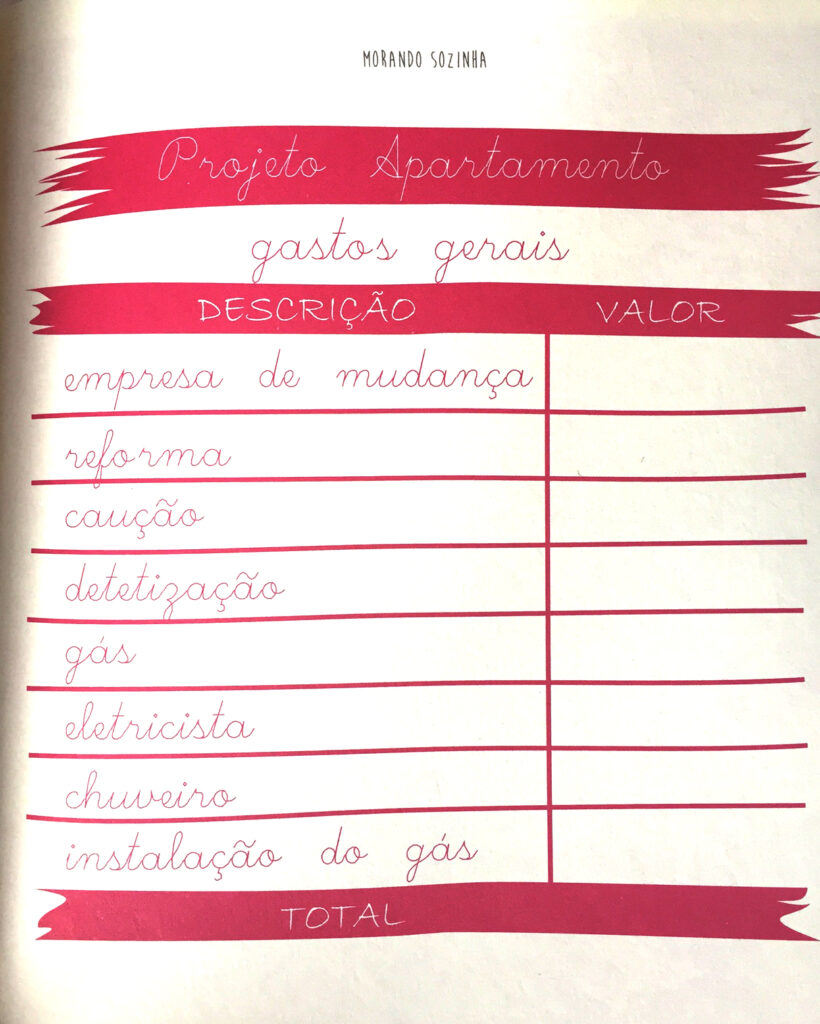 MORANDO SOZINHA
Projeto Apartamento
gastos gerais
DESCRIÇÃO VALOR
empresa de mudança
reforma
caução
detetização
gás
eletricista
chuveiro
instalação do gás
TOTAL